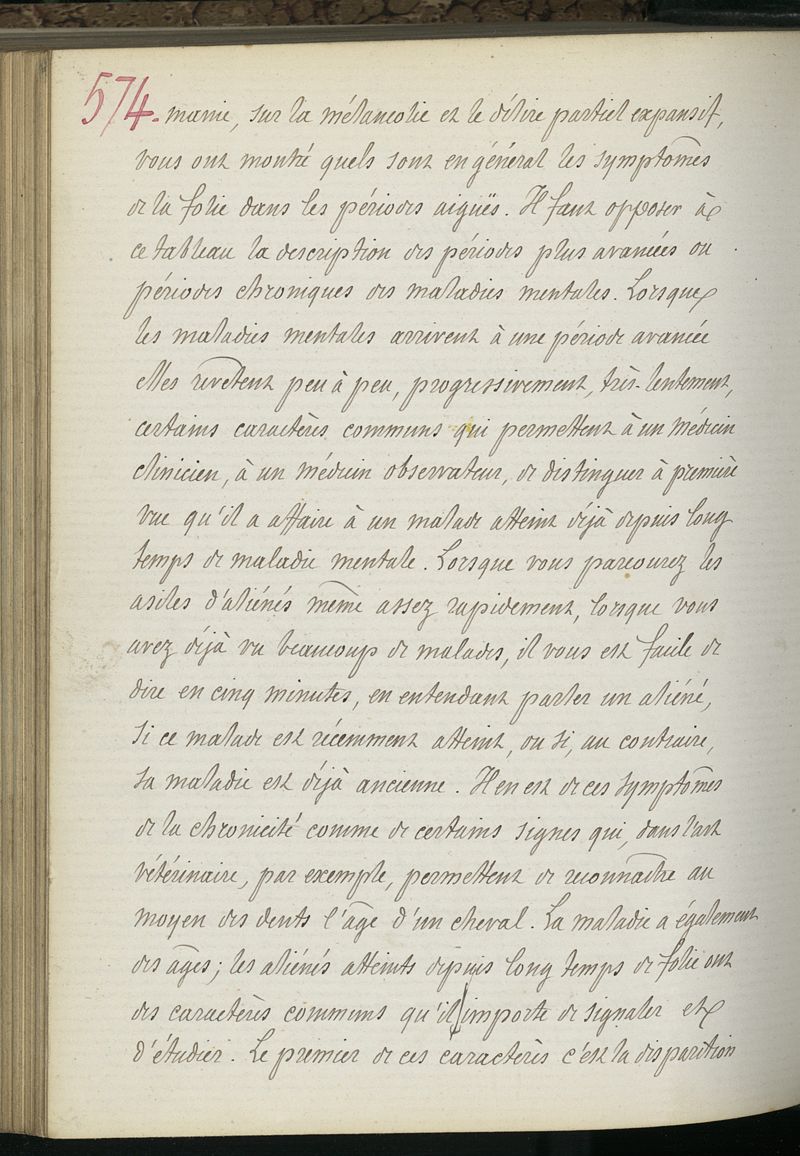 574. manie, sur la mélancolie et le délire partiel expansif,
vous ont montré quels sont en général les symptômes
de la folie dans les périodes aiguës. Il faut opposer à
ce tableau la description des périodes plus avancées ou
périodes chroniques des maladies mentales. Lorsque
les maladies mentales arrivent à une période avancée
elles revêtent peu à peu, progressivement, très-lentement,
certains caractères communs qui permettent à un médecin
clinicien, à un médecin observateur, de distinguer à première
vue qu'il a affaire à un malade atteint déjà depuis long
temps de maladie mentale. Lorsque vous parcourez les
asiles d'aliénés même assez rapidement, lorsque vous
avez déjà vu beaucoup de malades, il vous est facile de
dire en cinq minutes, en entendant parler un aliéné,
si ce malade est récemment atteint, ou si, au contraire,
sa maladie est déjà ancienne. Il en est de ces symptômes
de la chronicité comme de certains signes qui, dans l'art
vétérinaire, par exemple, permettent de reconnaître au
moyen des dents l'âge d'un cheval. La maladie a également
des âges; les aliénés atteints depuis long temps de folie ont
des caractères communs qu'il importe de signaler et
d'étudier. Le premier de ces caractères c'est la disparition